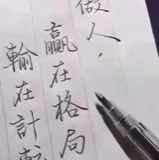 做人，
贏在格局
輸在計較